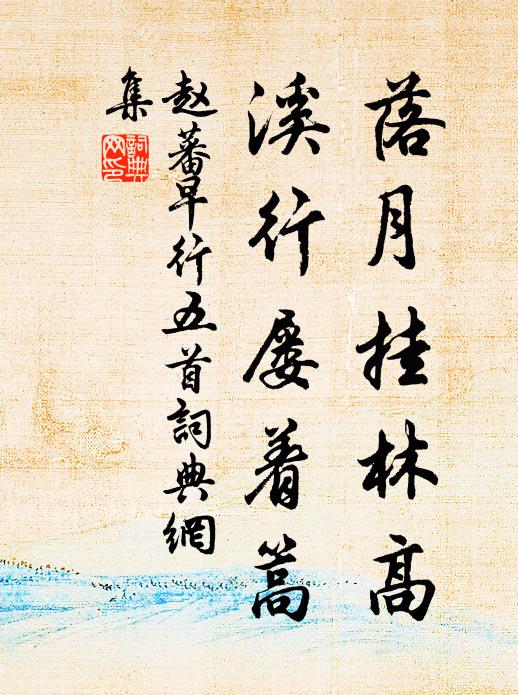 落月挂林高
溪行屡着篙
赵蕃早行五首詞典網
集
詞典网印